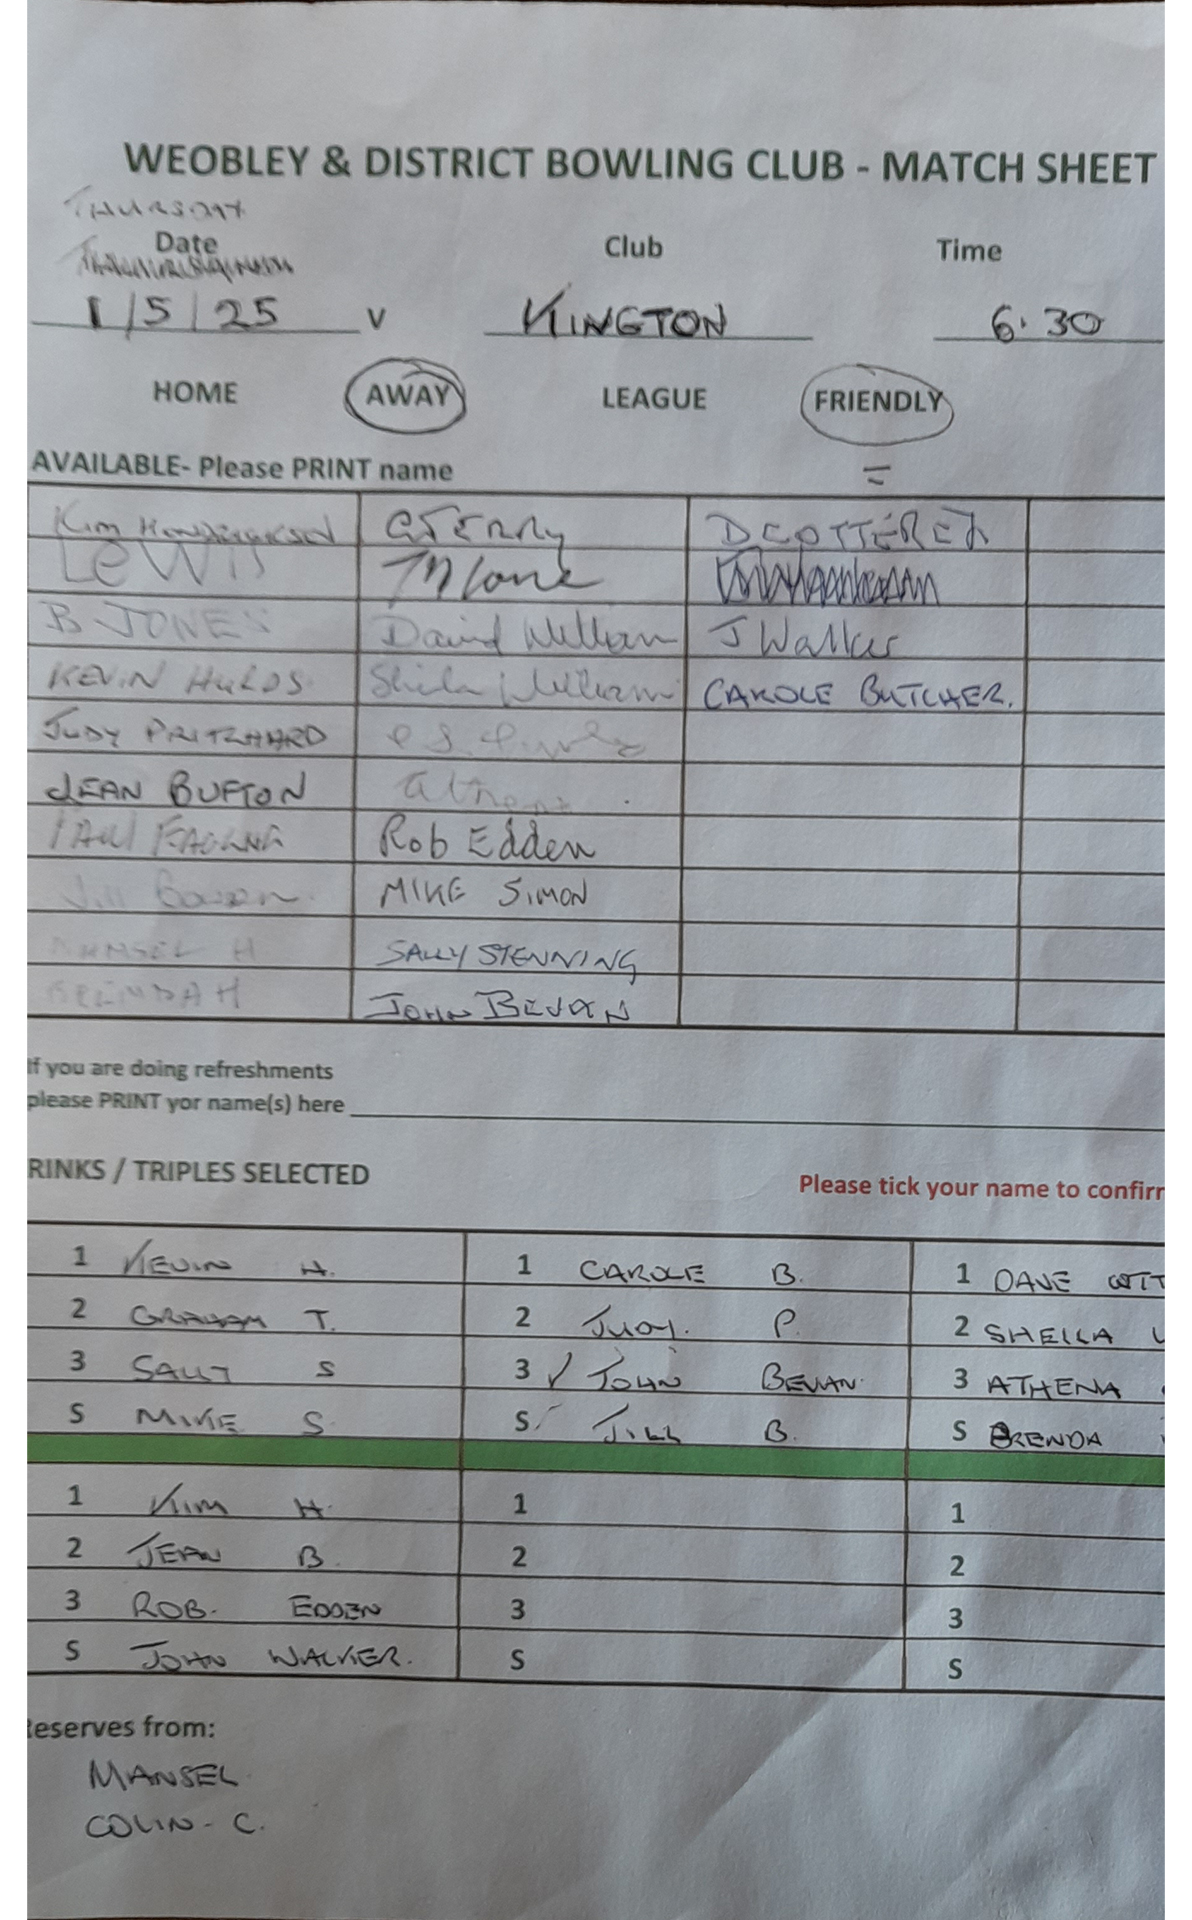 WEOBLEY & DISTRICT BOWLING CLUB - MATCH SHEET
THURSDAY
Date Club Time
1/5/25 v KINGTON 6.30
HOME AWAY LEAGUE FRIENDLY
AVAILABLE- Please PRINT name
Kim GTERRY D COTTEREL
LEWIS
B JONES David William J Walker
KEVIN HURDS Shila William CAROLE BUTCHER.
JUDY PRITCHARD
JEAN BUFTON Athena
PAUL Rob Edden
Jill Bowen MIKE SIMON
MANSEL H SALLY STENNING
BRENDA H JOHN BEVAN
If you are doing refreshments
please PRINT yor name(s) here
RINKS / TRIPLES SELECTED
Please tick your name to confirr
1 KEVIN H. 1 CAROLE B. 1 DAVE COTT
2 GRAHAM T. 2 JUDY. P. 2 SHEILA
3 SALLY S 3 ✓ JOHN BEVAN 3 ATHENA
S MIKE S. S JILL B. S BRENDA
1 KIM H. 1 1
2 JEAN B. 2 2
3 ROB. EDDEN 3 3
S JOHN WALKER. S S
Reserves from:
MANSEL
COLIN - C.